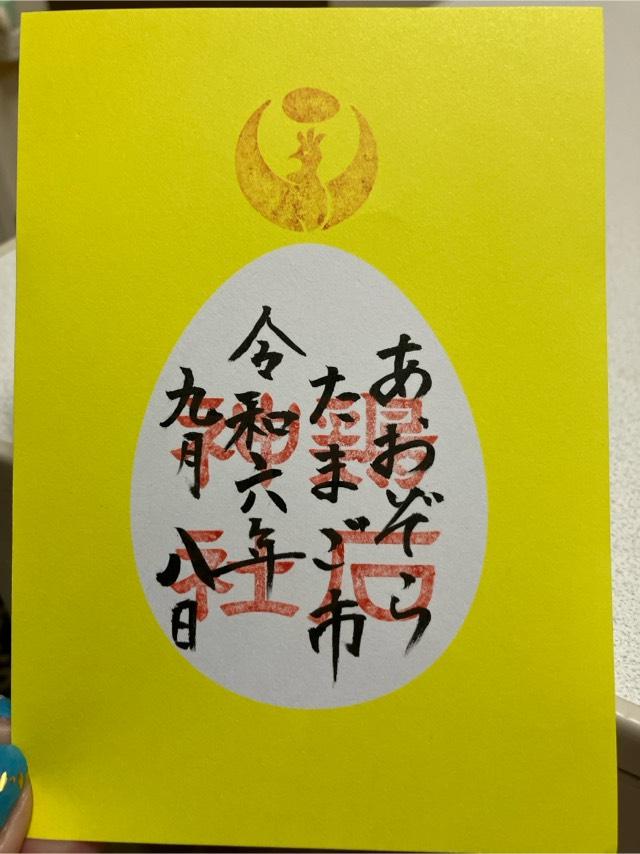 あおぞら
たまご市
令和六年
九月八日
鶏石
神社